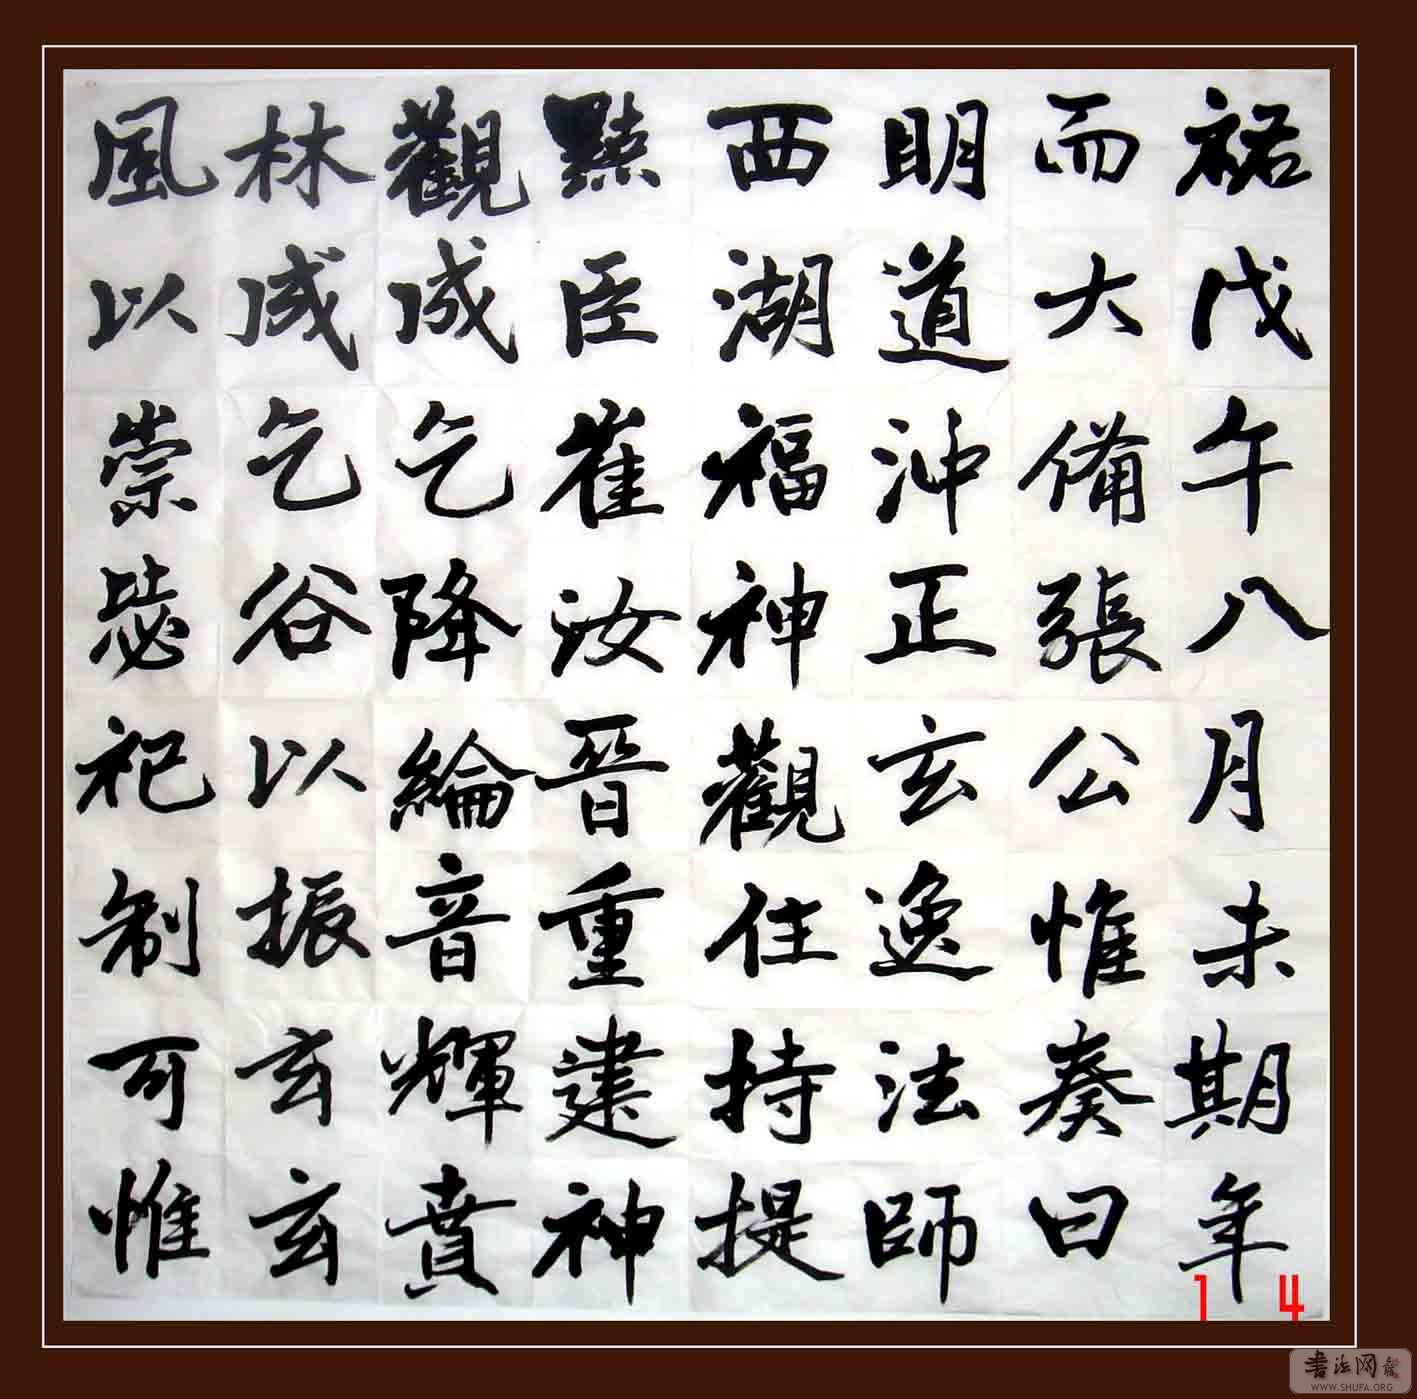 祐戊午八月未期年
而大備張公惟奏曰
明道沖正玄逸法師
西湖福神觀住持提
點臣崔汝晉重建神
觀成乞降綸音輝賁
林成乞谷以振玄玄
風以崇毖祀制可惟
14
书法网
WWW.SHUFA.ORG